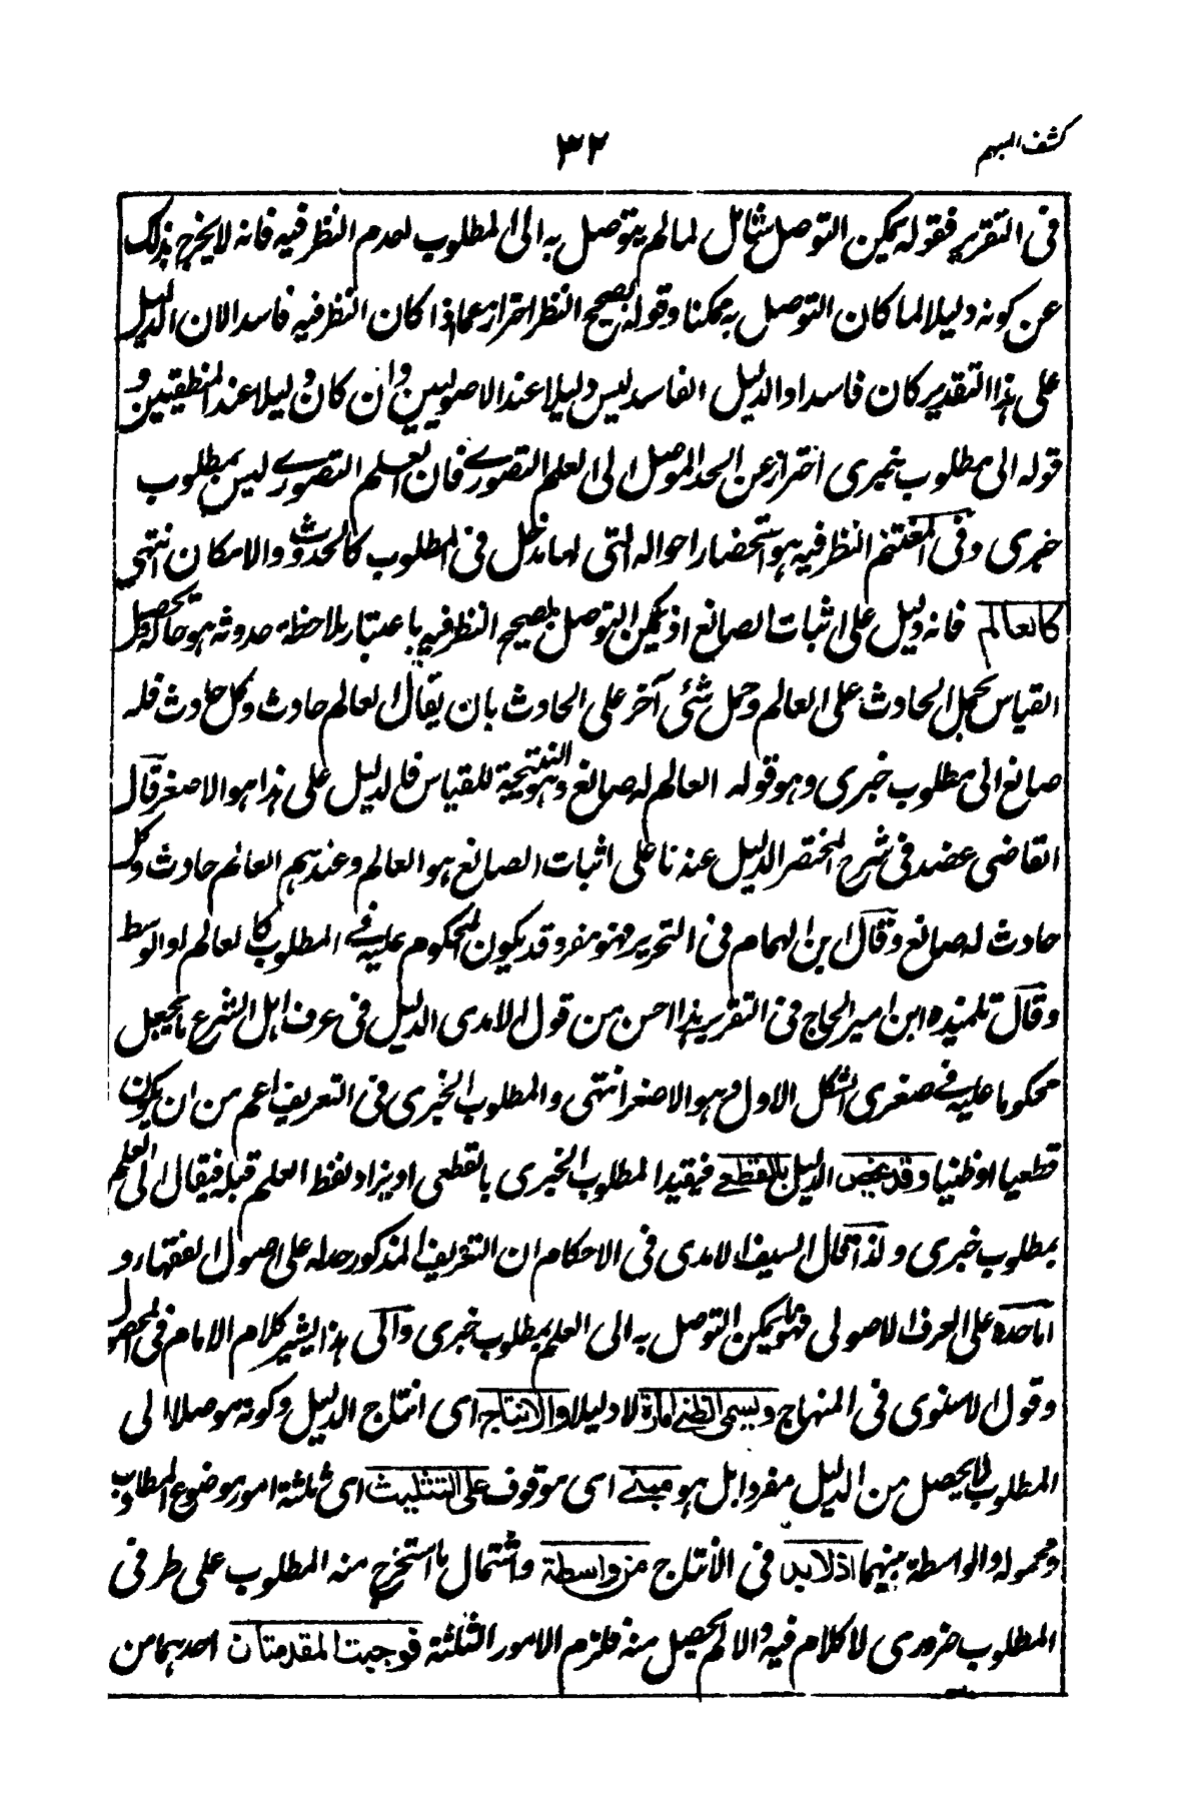 كشف المبهم
٣٢
فى التقرير فقوله يمكن التوصل شامل لما لم يتوصل به الى المطلوب لعدم النظر فيه فانه لا يخرج بذلك
عن كونه دليلا لما كان التوصل به ممكنا وقوله بصحيح النظر احتراز عما اذا كان النظر فيه فاسدا لان الدليل
على هذا التقدير كان فاسدا والدليل الفاسد ليس دليلا عند الاصوليين وان كان دليلا عند المنطقيين و
قوله الى مطلوب خبرى احتراز عن الحد الموصل الى العلم التصورى فان العلم التصورى ليس بمطلوب
خبرى وفى المغتنم النظر فيه هو استحضار احواله التى لها مدخل فى المطلوب كالحدوث والامكان انتهى
كالعالم فانه دليل على اثبات الصانع اذ يمكن التوصل بصحيح النظر فيه باعتبار ملاحظة حدوثه هو حاله
القياس بحمل الحادث على العالم وحمل شئ آخر على الحادث بان يقال العالم حادث وكل حادث فله
صانع الى مطلوب خبرى وهو قوله العالم له صانع وهو النتيجة للقياس فالدليل على هذا هو الاصغر قال
القاضى عضد فى شرح المختصر الدليل عندنا على اثبات الصانع هو العالم وعندهم العالم حادث وكل
حادث له صانع وقال ابن الهمام فى التحرير فهو مفرد قد يكون المحكوم عليه فى المطلوب كالعالم او الوسط
وقال تلميذه ابن امير الحاج فى التقرير هذا احسن من قول الامدى الدليل فى عرف اهل الشرع ما يجعل
محكوما عليه فى صغرى الشكل الاول وهو الاصغر انتهى والمطلوب الخبرى فى التعريف اعم من ان يكون
قطعيا او ظنيا وقد يخص الدليل بالقطعى فيقيد المطلوب الخبرى بالقطعى او يزاد لفظ العلم قبله فيقال الى العلم
بمطلوب خبرى ولذا قال السيف الامدى فى الاحكام ان التعريف المذكور حد له على اصول الفقهاء و
اما حده على العرف الاصولى فهو ما يمكن التوصل به الى العلم بمطلوب خبرى والى هذا يشير كلام الامام فى المحصول
وقول الاسنوى فى المنهاج ويسمى الظنى امارة لا دليلا والانتاج اى انتاج الدليل وكونه موصلا الى
المطلوب لا يحصل من الدليل مفردا بل هو مبنى اى موقوف على التثليث اى ثلثة امور موضوع المطلوب
ومحموله والواسطة بينهما اذ لا بد فى الانتاج من واسطة واشتمال ما استخرج منه المطلوب على طرفى
المطلوب ضرورى لا كلام فيه والا لم يحصل منه فلزم الامور الثلثة فوجبت المقدمتان احدهما من